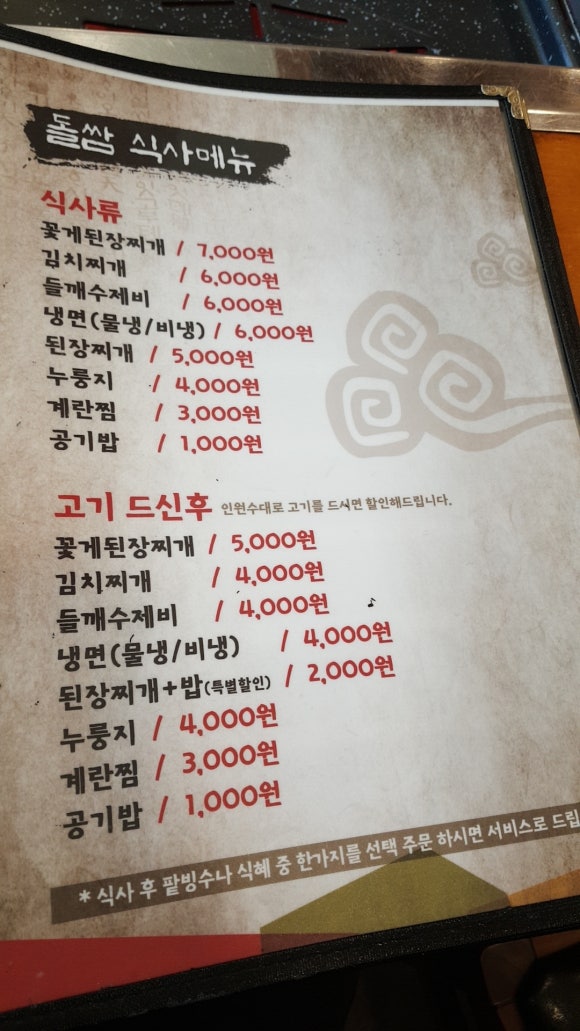 돌쌈 식사메뉴
식사류
꽃게된장찌개 / 7,000원
김치찌개 / 6,000원
들깨수제비 / 6,000원
냉면(물냉/비냉) / 6,000원
된장찌개 / 5,000원
누룽지 / 4,000원
계란찜 / 3,000원
공기밥 / 1,000원
고기 드신후 인원수대로 고기를 드시면 할인해드립니다.
꽃게된장찌개 / 5,000원
김치찌개 / 4,000원
들깨수제비 / 4,000원
냉면(물냉/비냉) / 4,000원
된장찌개+밥(특별할인) / 2,000원
누룽지 / 4,000원
계란찜 / 3,000원
공기밥 / 1,000원
* 식사 후 팥빙수나 식혜 중 한가지를 선택 주문 하시면 서비스로 드립